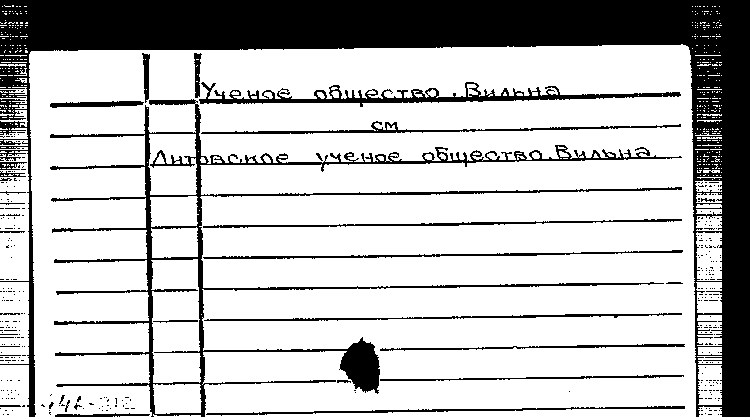 Ученое общество. Вильна
см
Литовское ученое общество. Вильна